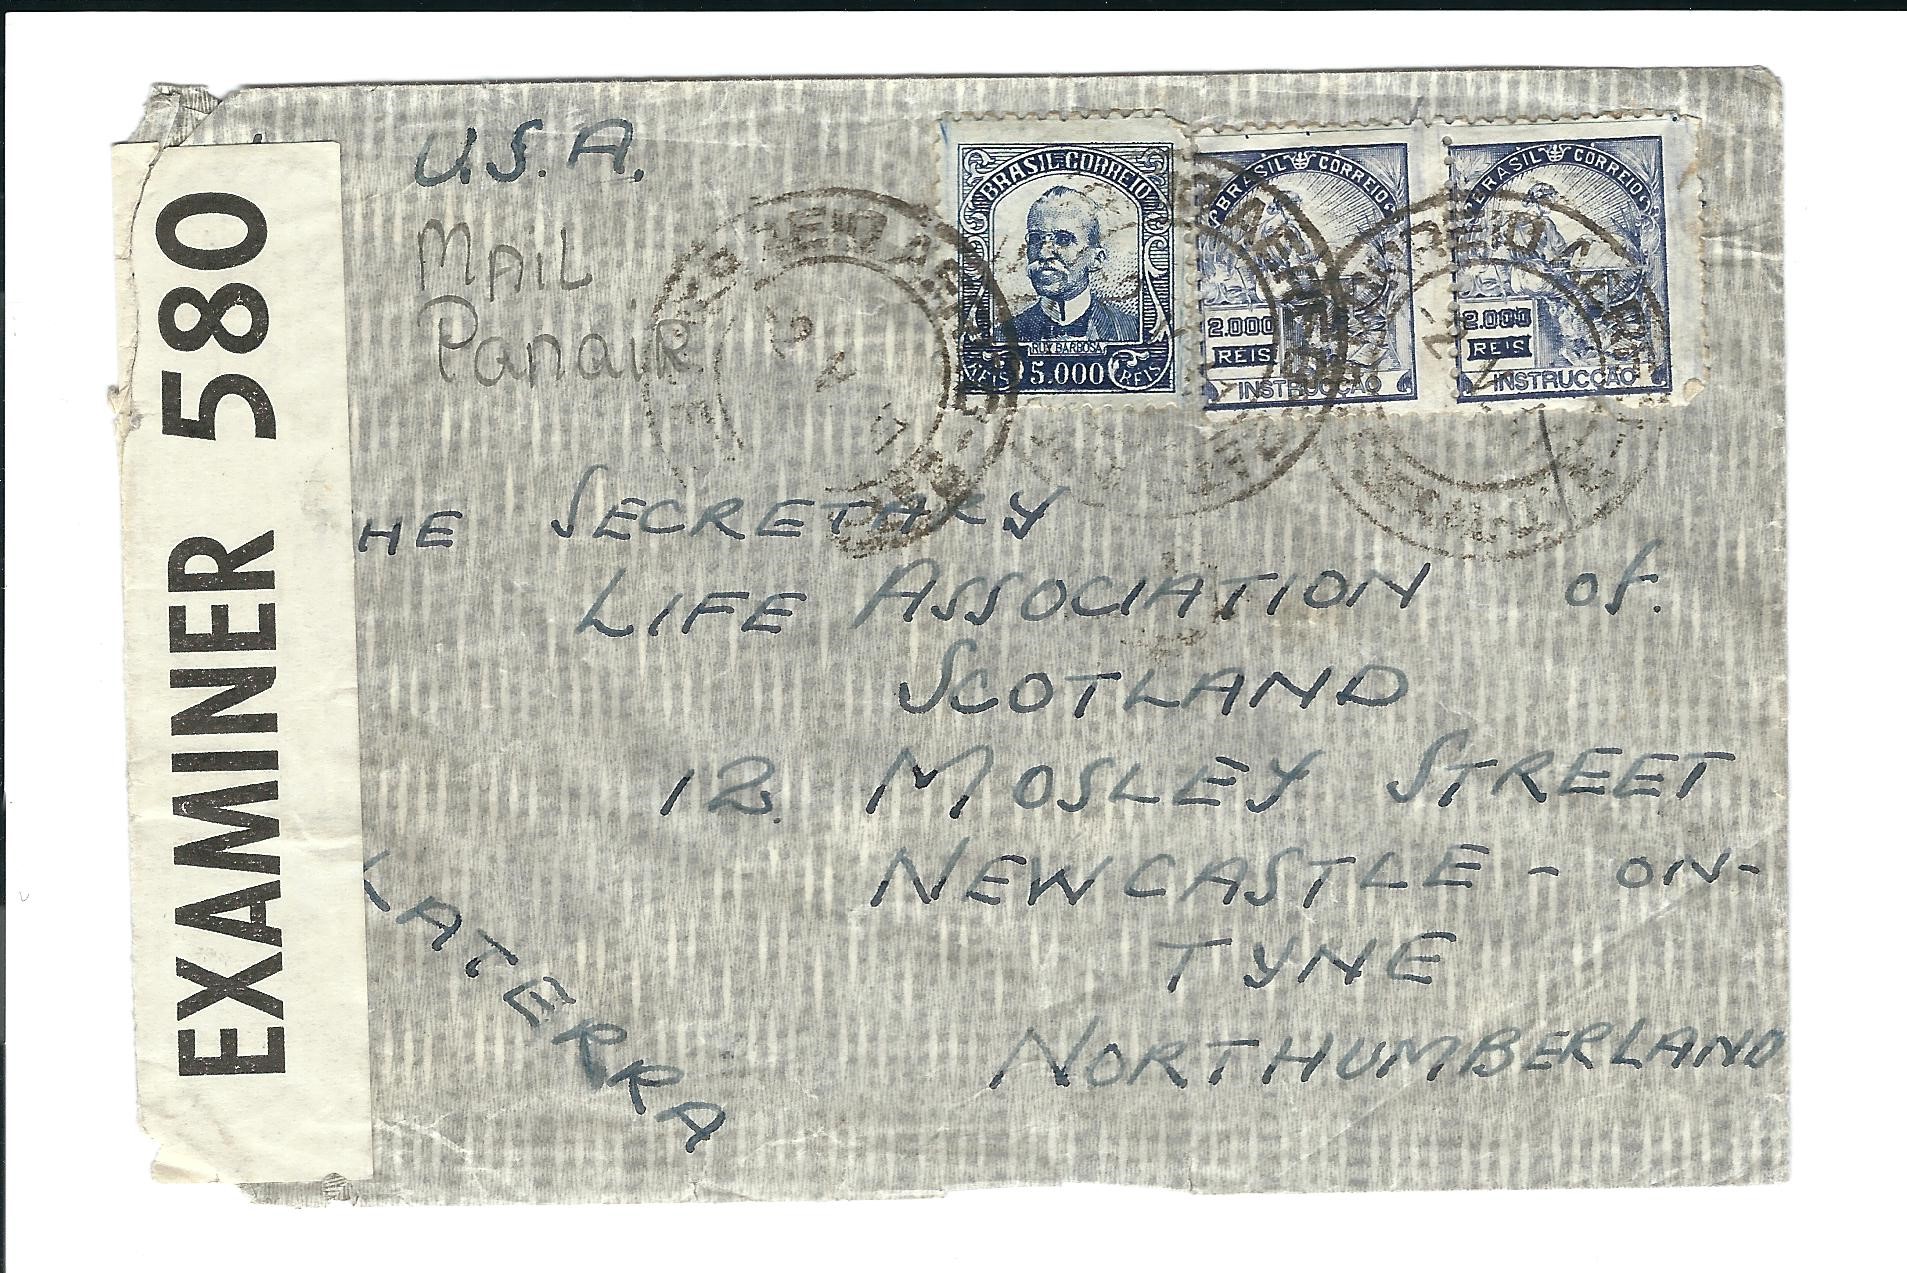 EXAMINER 580
U.S.A.
MAIL
Panair
BRASIL CORREIO
RUY BARBOSA
REIS 5.000 REIS
BRASIL CORREIO
2.000
REIS
INSTRUCÇÃO
BRASIL CORREIO
2.000
REIS
INSTRUCÇÃO
HE SECRETARY
LIFE ASSOCIATION of.
SCOTLAND
12. MOSLEY STREET
NEWCASTLE - ON-
TYNE
NORTHUMBERLAND
ATERRA